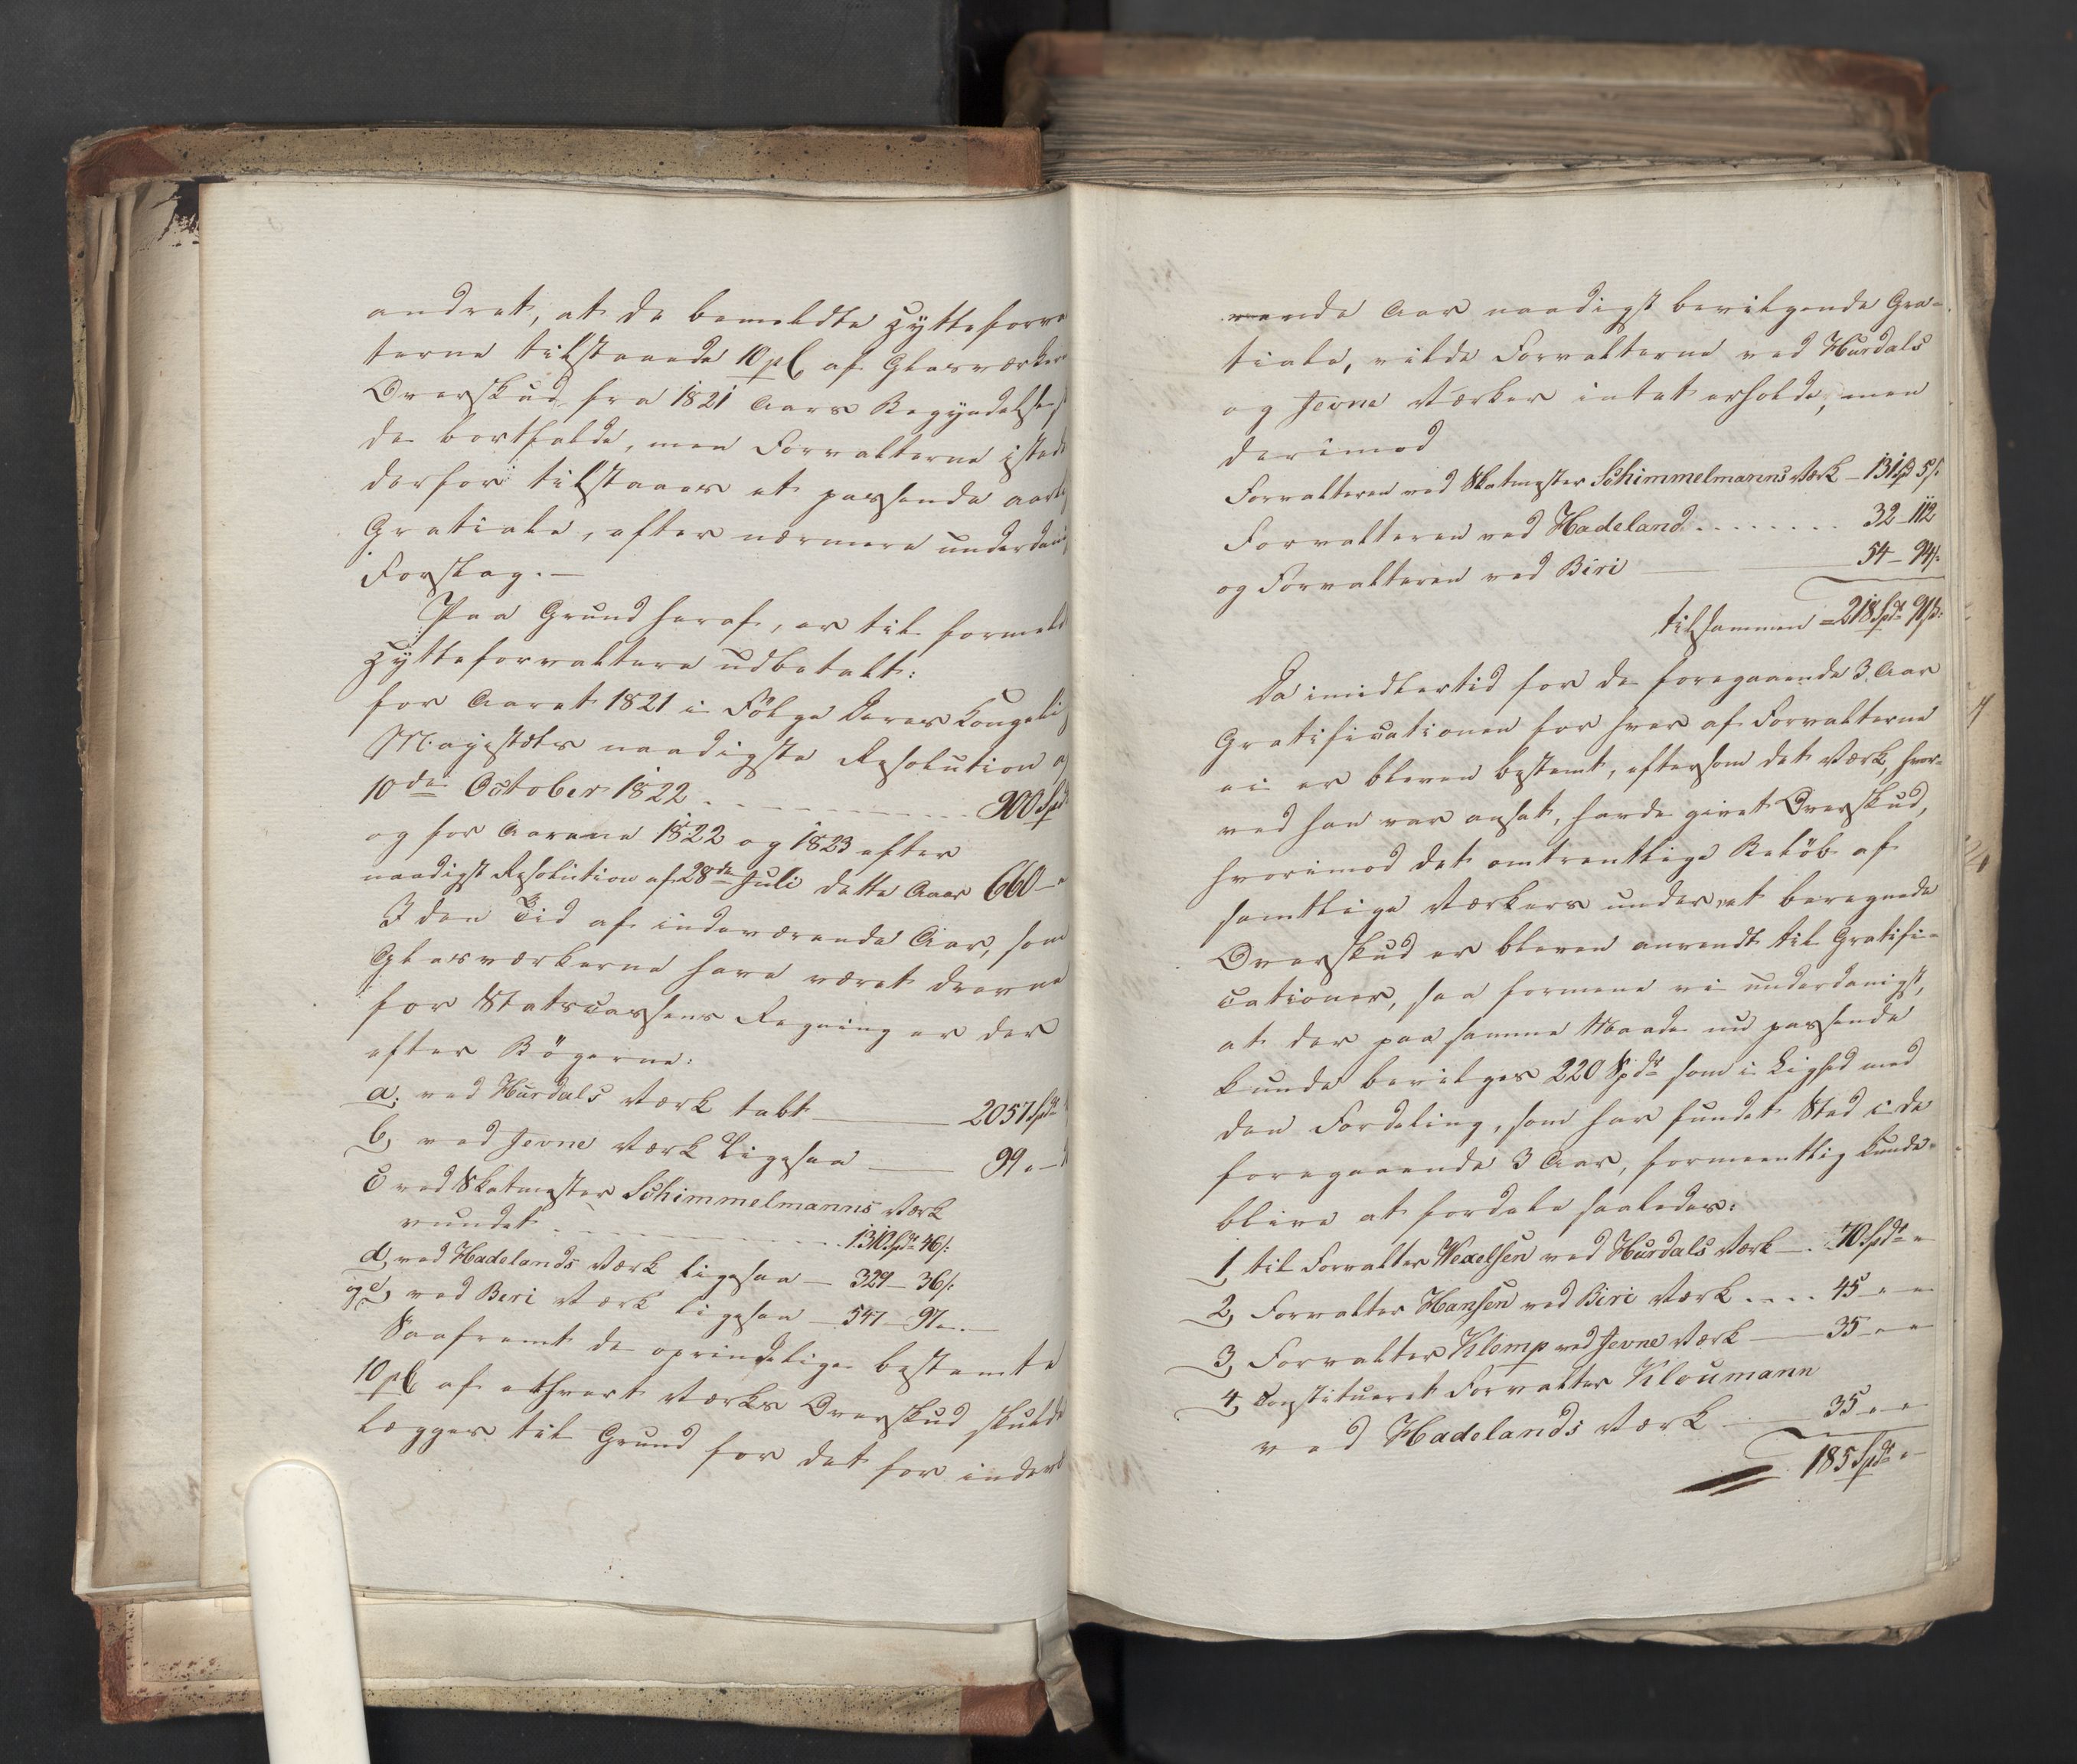 andret, at de bemeldte Hytteforva
terne tilstaaede 10 pC af Glasværkern
Overskud fra 1821 Aars Begyndelse
de bortfalde, men Forvalterne isted
derfor tilstaaes et passende aarl
Gratiale, efter nærmere underdan
Forslag. —
Paa Grund heraf, er til formeld
Hytteforvaltere udbetalt:
for Aaret 1821 i Følge Deres Kongeli
Majestæts naadigste Resolution a
10de October 1822 900 Spd
og for Aarene 1822 og 1823 efter
naadigst Resolution af 28de Juli dette Aar 660 —
I den Tid af indeværende Aar, som
Glasværkerne have været drevne
for Statscassens Regning er der
efter Bøgerne:
a, ved Hurdals Værk tabt — 2057 Spd
b, ved Jevne Værk ligesaa — 99 „ —
c ved Skatmester Schimmelmanns Værk
vundet 1312 Spdr 46 s:
d, ved Hadelands Værk ligesaa — 329 — 36 s:
og e, ved Beri Værk ligesaa — 547 — 97 „ —
Saafremt de oprindelige bestemte
10 pC af ethvert Værks Overskud skulde
lægges til Grund for det for indev
rende Aar naadigst bevilgende Gra-
tiale, vilde Forvalterne ved Hurdals
og Jevne Værker intet erholde, men
derimod
Forvalteren ved Skatmester Schimmelmanns Værk — 131 Spd 5 s:
Forvalteren ved Hadeland 32 — 112
og Forvalteren ved Biri 54 — 94 s:
tilsammen = 218 Spdr 91 s:
Da imidlertid for de foregaaende 3 Aar
Gratificationen for hver af Forvalterne
ei er bleven bestemt, eftersom det Værk, hvor-
ved han var ansat, havde givet Overskud,
hvorimod det omtrentlige Beløb af
samtlige Værkers under eet beregnede
Overskud er bleven anvendt til Gratifi-
cationer, saa formene vi underdanigst,
at der paa samme Maade nu passende
kunde bevilges 220 Spdr som i Lighed med
den Fordeling, som har fundet Sted i de
foregaaende 3 Aar, formeentlig kunde
blive at fordele saaledes:
1, til Forvalter Wexelsen ved Hurdals Værk — 70 Spdr „
2, Forvalter Hansen ved Biri Værk 45 „ „
3, Forvalter Klomp ved Jevne Værk — 35 „ „
4, Constitueret Forvalter Kloumann
ved Hadelands Værk — 35 „ „
185 Spdr „